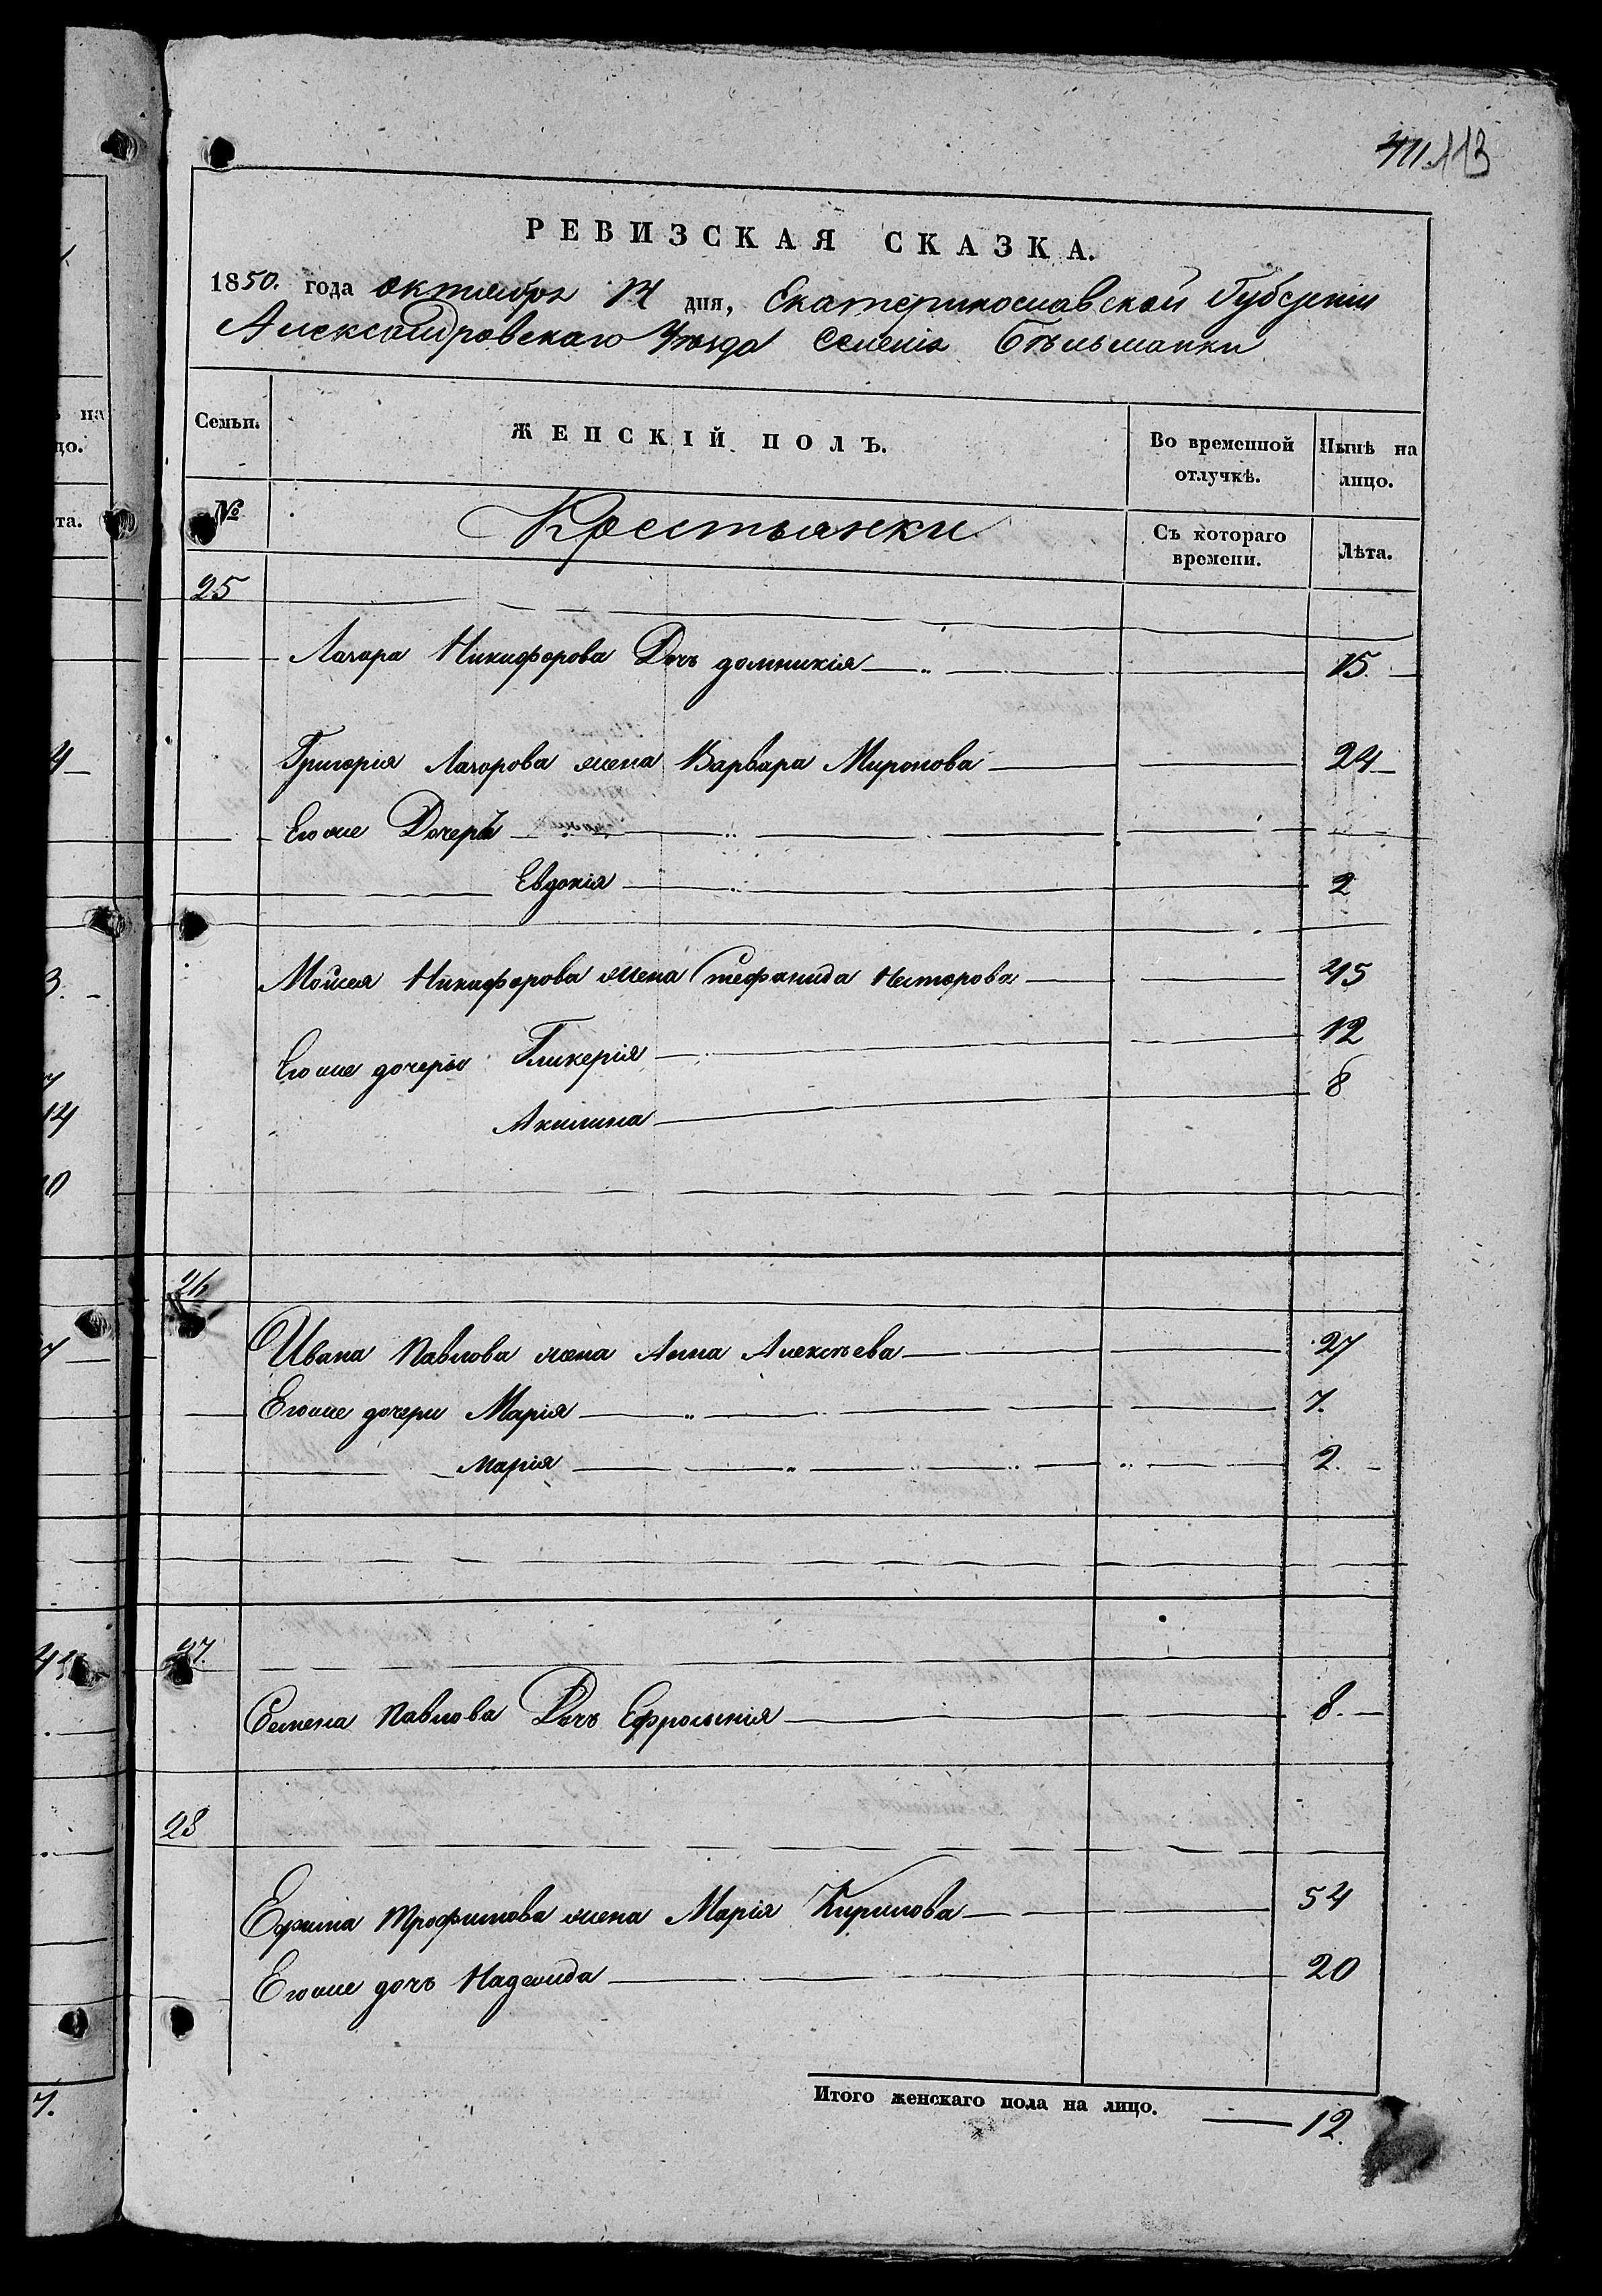 113
РЕВИЗСКАЯ СКАЗКА.
1850. года октября 14 дня, Екатеринославской Губерніи
Александровскаго Уѣзда Селенія Бѣльманки
Семьи.
ЖЕНСКІЙ ПОЛЪ.
Во временной отлучкѣ.
Нынѣ на лицо.
№
Крестьянки
Съ котораго времени.
Лѣта.
25
Лазаря Никифорова Дочь домникія 15.
Григорія Лазорова жена Варвара Миронова 24
Егоже Дочери
Евдокія 2
Мойсея Никифорова жена Стефанида Несторова 45
Егоже дочеры Гликерія 12
Акилина 8
26
Ивана Павлова жена Анна Алексѣева 27
Егоже дочери Марія 7.
марія 2.
27.
Семена Павлова Дочь Ефросинія 8.
28
Ефима Трофимова жена Марія Кирилова 54
Егоже дочь Надежда 20
Итого женскаго пола на лицо. 12.